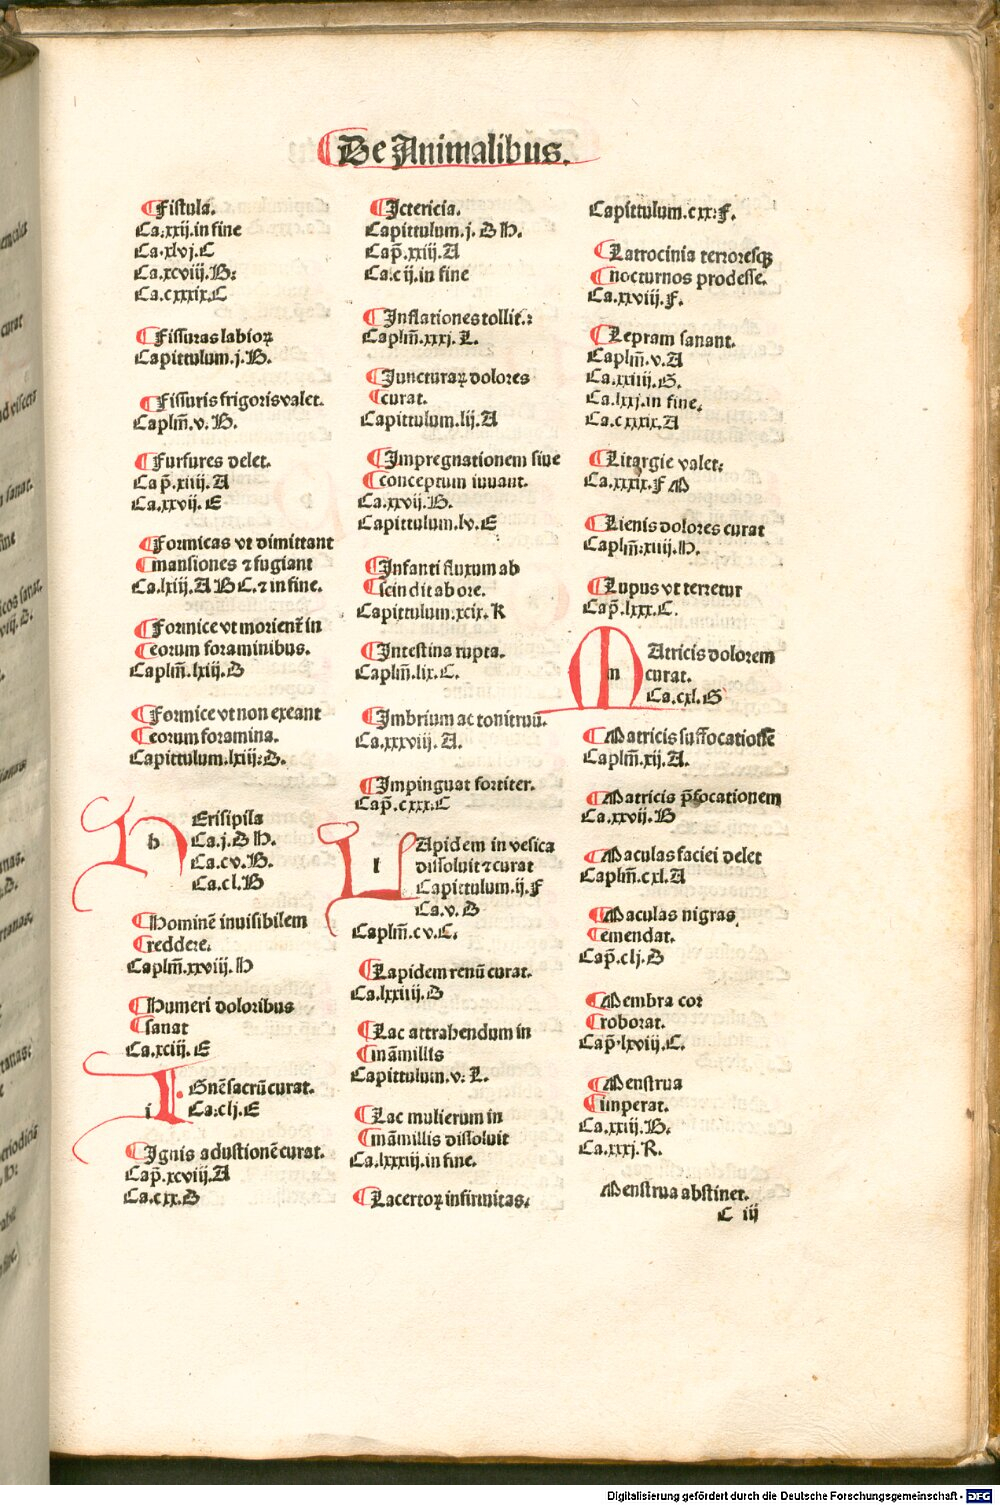 De Animalibus.
Fistula.
Ca.xxij.in fine
Ca.xlvj.C
Ca.xcviij.H:
Ca.cxxxix.C
Fissuras labioꝝ
Capittulum.j.H.
Fissuris frigoris valet.
Caplm̄.v.H.
Furfures delet.
Cap̄.xiiij.A
Ca.xxvij.E
Formicas vt dimittant
mansiones ⁊ fugiant
Ca.lxiij.A B C.⁊ in fine.
Formice vt morienť in
eorum foraminibus.
Caplm̄.lxiij.D
Formice vt non exeant
eorum foramina.
Capittulum.lxiij.D.
h Erisipila
Ca.j.D H.
Ca.cv.H.
Ca.cl.B
Hominē inuisibilem
reddere.
Caplm̄.xxviij.H
Humeri doloribus
sanat
Ca.xciij.E
i Gnē sacrū curat.
Ca:clj.E
Ignis adustionē curat.
Cap̄.xcviij.A
Ca.cxx.D
Ictericia.
Capittulum.j.D H.
Cap̄.xxiij.A
Ca.cij.in fine
Inflationes tollit.:
Caplm̄.xxxj.L.
Juncturaꝝ dolores
curat.
Capittulum.lij.A
Impregnationem siue
conceptum iuuant.
Ca.xxvij.H.
Capittulum.lv.E
Infanti fluxum ab
scindit ab ore.
Capittulum.xcix.K
Intestina rupta.
Caplm̄.lix.C.
Imbrium ac tonitruū.
Ca.xxxviij.A.
Impinguat fortiter.
Cap̄.cxxx.C
l Apidem in vesica
dissoluit ⁊ curat
Capittulum.ij.F
Ca.v.D
Caplm̄.cv.C.
Lapidem renū curat.
Ca.lxxiiij.D
Lac attrahendum in
māmillis
Capittulum.v:L.
Lac mulierum in
māmillis dissoluit
Ca.lxxxiij.in fine.
Lacertoꝝ infirmitas.
Capittulum.cxx:F.
Latrocinia terroresqꝫ
nocturnos prodesse.
Ca.xxviij.F.
Lepram sanant.
Caplm̄.v.A
Ca.xxiiij.G.
Ca.lxxj.in fine.
Ca.cxxix.A
Litargie valet:
Ca.xxxix.F M
Lienis dolores curat
Caplm̄:xiiij.H.
Lupus vt terretur
Cap̄.lxxx.C.
m Atricis dolorem
curat.
Ca.cxl.G
Matricis suffocatiōē
Caplm̄.xij.A.
Matricis p̄focationem
Ca.xxvij.H
Maculas faciei delet
Caplm̄.cxl.A
Maculas nigras
emendat.
Cap̄.clj.D
Membra cor
roborat.
Cap̄.lxviij.C.
Menstrua
imperat.
Ca.xxiij.H.
Ca.xxxj.K.
Menstrua abstinet.
C iij
Digitalisierung gefördert durch die Deutsche Forschungsgemeinschaft - DFG